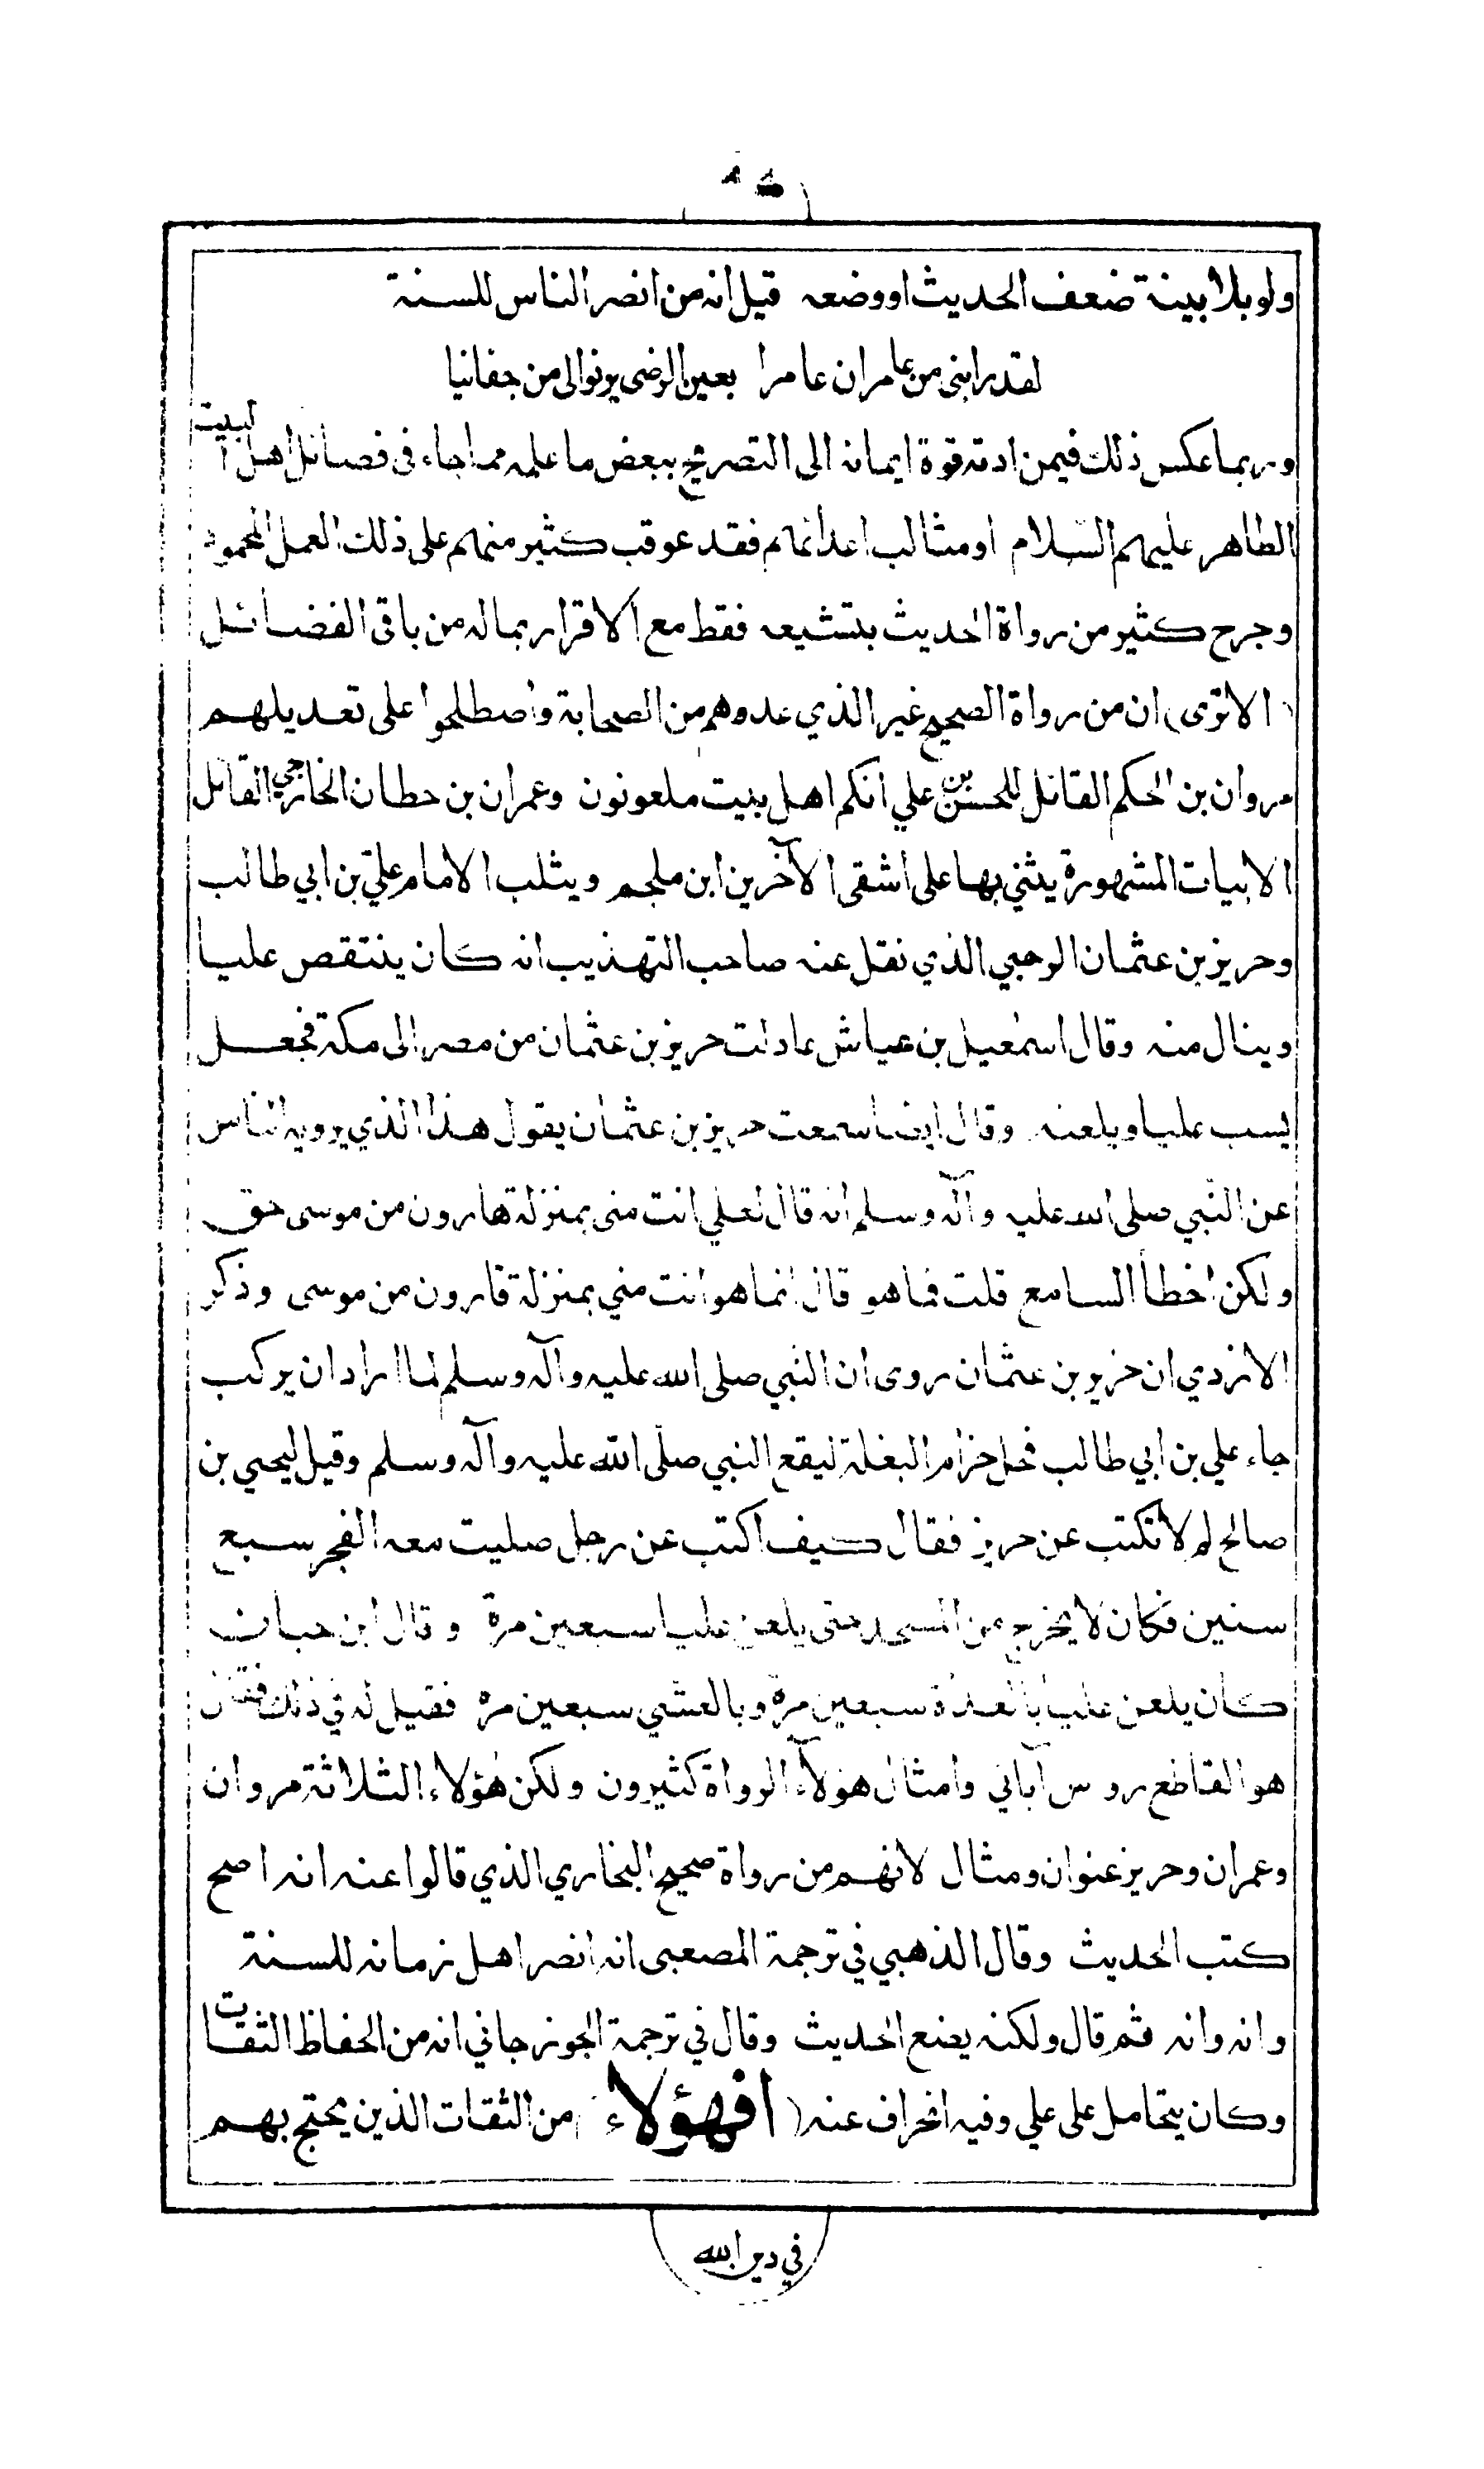 ولو بلا بينة ضعف الحديث او وضعه قيل انه من انصر الناس للسنة
لقد رابنى من عامر ان عامرا بعين الرضى يرنو الى من جفانيا
وربما عكس ذلك فيمن ادته قوة ايمانه الى التصريح ببعض ما علمه مما جاء فى فضائل اهل البيت
الطاهر عليهم السلام او مثالب اعدائهم فقد عوقب كثير منهم على ذلك العمل المحمود
وجرح كثير من رواة الحديث بتشيعه فقط مع الاقرار بماله من باقى الفضائل
(الا ترى) ان من رواة الصحيح غير الذي عدوهم من الصحابة واصطلحوا على تعديلهم
مروان بن الحكم القائل للحسن بن علي انكم اهل بيت ملعونون وعمران بن حطان الخارجي القائل
الابيات المشهورة يثني بها على اشقى الآخرين ابن ملجم ويثلب الامام علي بن ابي طالب
وحريز بن عثمان الرحبي الذي نقل عنه صاحب التهذيب انه كان ينتقص عليا
وينال منه وقال اسمعيل بن عياش عادلت حريز بن عثمان من مصر الى مكة فجعل
يسب عليا ويلعنه وقال ايضا سمعت حريز بن عثمان يقول هذا الذي يرويه الناس
عن النبي صلى الله عليه وآله وسلم انه قال لعلي انت منى بمنزلة هارون من موسى حق
ولكن اخطأ السامع قلت فما هو قال انما هو انت مني بمنزلة قارون من موسى وذكر
الازدي ان حريز بن عثمان روى ان النبي صلى الله عليه وآله وسلم لما اراد ان يركب
جاء علي بن ابي طالب فحل حزام البغلة ليقع النبي صلى الله عليه وآله وسلم وقيل ليحيى بن
صالح لم لا تكتب عن حريز فقال كيف اكتب عن رجل صليت معه الفجر سبع
سنين فكان لا يخرج من المسجد حتى يلعن عليا سبعين مرة وقال ابن حبان
كان يلعن عليا بالغداة سبعين مرة وبالعشي سبعين مرة فقيل له في ذلك فقال
هو القاطع روس آبائي وامثال هؤلآء الرواة كثيرون ولكن هؤلاء الثلاثة مروان
وعمران وحريز عنوان ومثال لانهم من رواة صحيح البخاري الذي قالوا عنه انه اصح
كتب الحديث وقال الذهبي في ترجمة المصعبى انه انصر اهل زمانه للسنة
وانه وانه ثم قال ولكنه يضع الحديث وقال في ترجمة الجوزجاني انه من الحفاظ الثقات
وكان يتحامل على علي وفيه انحراف عنه (افهؤلاء) من الثقات الذين يحتج بهم
في دين الله